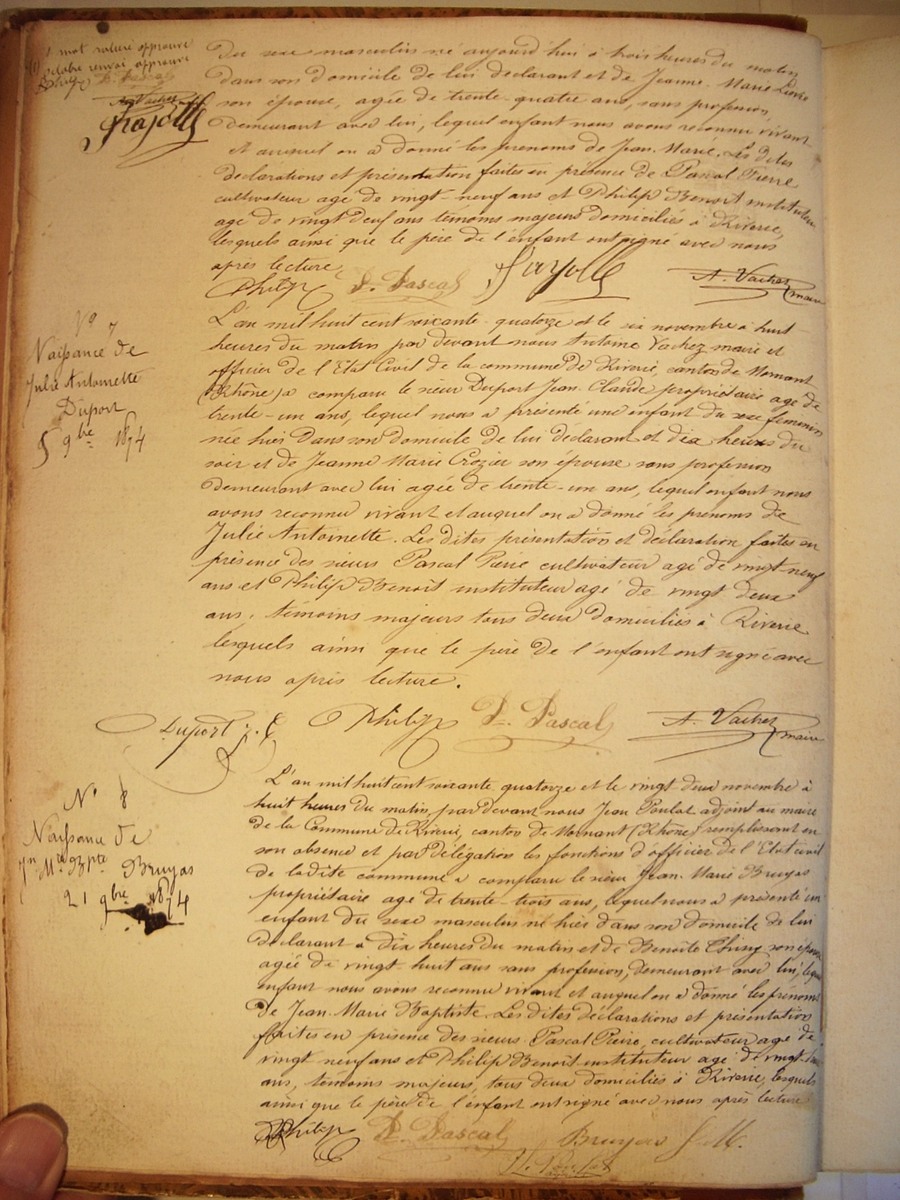 1 mot raturé approuvé
octobre renvoi approuvé
Philip P. Pascal
A. Vachez
Fayolle
du sexe masculin né aujourd'hui à trois heures du matin
dans son domicile de lui déclarant et de Jeanne Marie
son épouse, agée de trente-quatre ans, sans profession,
demeurant avec lui, lequel enfant nous avons reconnu vivant
et auquel on a donné les prénoms de Jean-Marie. Les dites
déclarations et présentation faites en présence de Pascal Pierre
cultivateur agé de vingt-neuf ans et Philip Benoit instituteur
agé de vingt deux ans témoins majeurs domiciliés à Riverie,
lesquels ainsi que le père de l'enfant ont signé avec nous
après lecture.
Philip P. Pascal Fayolle A. Vachez maire
N° 7
Naissance de
Julie Antoinette
Duport
5 9bre 1874
L'an mil huit cent soixante-quatorze et le six novembre à huit
heures du matin par devant nous Antoine Vachez maire et
officier de l'Etat Civil de la commune de Riverie, canton de Mornant
(Rhône) a comparu le sieur Duport Jean Claude propriétaire agé de
trente-un ans, lequel nous a présenté une enfant du sexe feminin
née hier dans son domicile de lui déclarant et dix heures du
soir et de Jeanne Marie Crozier son épouse sans profession
demeurant avec lui agée de trente-un ans, lequel enfant nous
avons reconnu vivant et auquel on a donné les prénoms de
Julie Antoinette. Les dites présentation et déclaration faites en
présence des sieurs Pascal Pierre cultivateur agé de vingt-neuf
ans et Philip Benoit instituteur agé de vingt deux
ans, témoins majeurs tous deux domiciliés à Riverie
lesquels ainsi que le père de l'enfant ont signé avec
nous après lecture.
Duport j. C Philip P. Pascal A. Vachez maire
N° 8
Naissance de
Jn Mie Bpte Bruyas
21 9bre 1874
L'an mil huit cent soixante, quatorze et le vingt deux novembre à
huit heures du matin, par devant nous Jean Poulat adjoint au maire
de la Commune de Riverie, canton de Mornant (Rhône) remplissant en
son absence et par délégation les fonctions d'officier de l'Etat civil
de la dite commune a comparu le sieur Jean-Marie Bruyas
propriétaire agé de trente-trois ans, lequel nous a présenté un
enfant du sexe masculin né hier dans son domicile de lui
déclarant à dix heures du matin et de Benoîte son épouse
agée de vingt-huit ans sans profession, demeurant avec lui, lequel
enfant nous avons reconnu vivant et auquel on a donné les prénoms
de Jean-Marie Baptiste. Les dites déclarations et présentation
faites en présence des sieurs Pascal Pierre, cultivateur agé de
vingt-neuf ans et Philip Benoit instituteur agé de vingt-deux
ans, témoins majeurs, tous deux domiciliés à Riverie, lesquels
ainsi que le père de l'enfant ont signé avec nous après lecture
Philip P. Pascal Bruyas